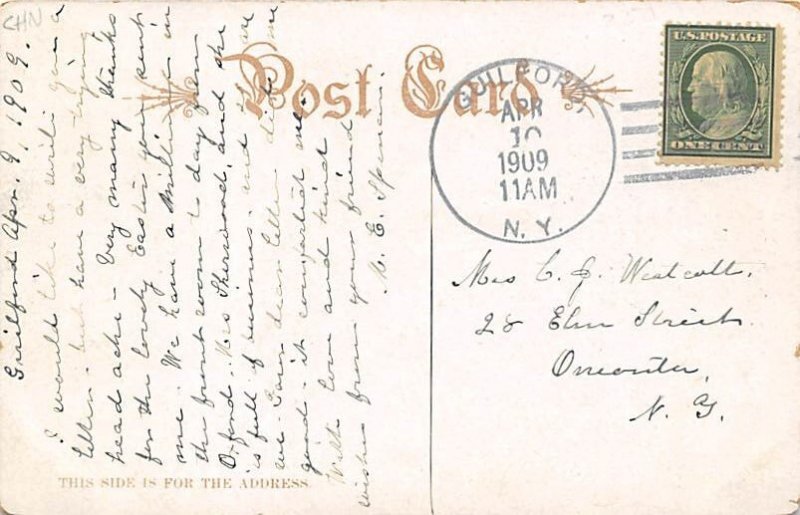 CHN
Post Card
GUILFORD,
APR
10
1909
11AM
N. Y.
U.S. POSTAGE
ONE CENT
Guilford Apr. 9, 1909.
I would like to write you a
letter - but have a very trying
head ache - Very many thanks
for the lovely Easter you sent
me. We have a Milliner in
the front room to day from
Oxford. Mrs Sherwood, and she
is full of business - and
we
good - is comfortable
With love and kind
wishes from your friend
M. E. Spencer.
Mrs C. J. Westcott.
28 Elm Street
Oneonta,
N. Y.
THIS SIDE IS FOR THE ADDRESS.